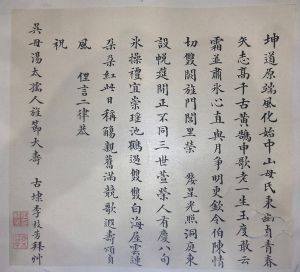 坤道原端風化始中山母氏秉幽貞青春
矢志高千古黃鵠申歌老一生玉度敢云
霜並肅冰心直與月爭明更欽令伯陳情
切雙闕旌門閭里榮 婺星光照洞庭東
設帨筵開正不同三世萱榮人有慶八旬
冰操禮宜崇瑤池鶴過雙雙白海屋雲連
朵朵紅此日稱觴親舊滿競歌遐壽頌貞
風 俚言二律恭
祝
吳母湯太孺人旌節大壽 古埭李枝芳拜艸